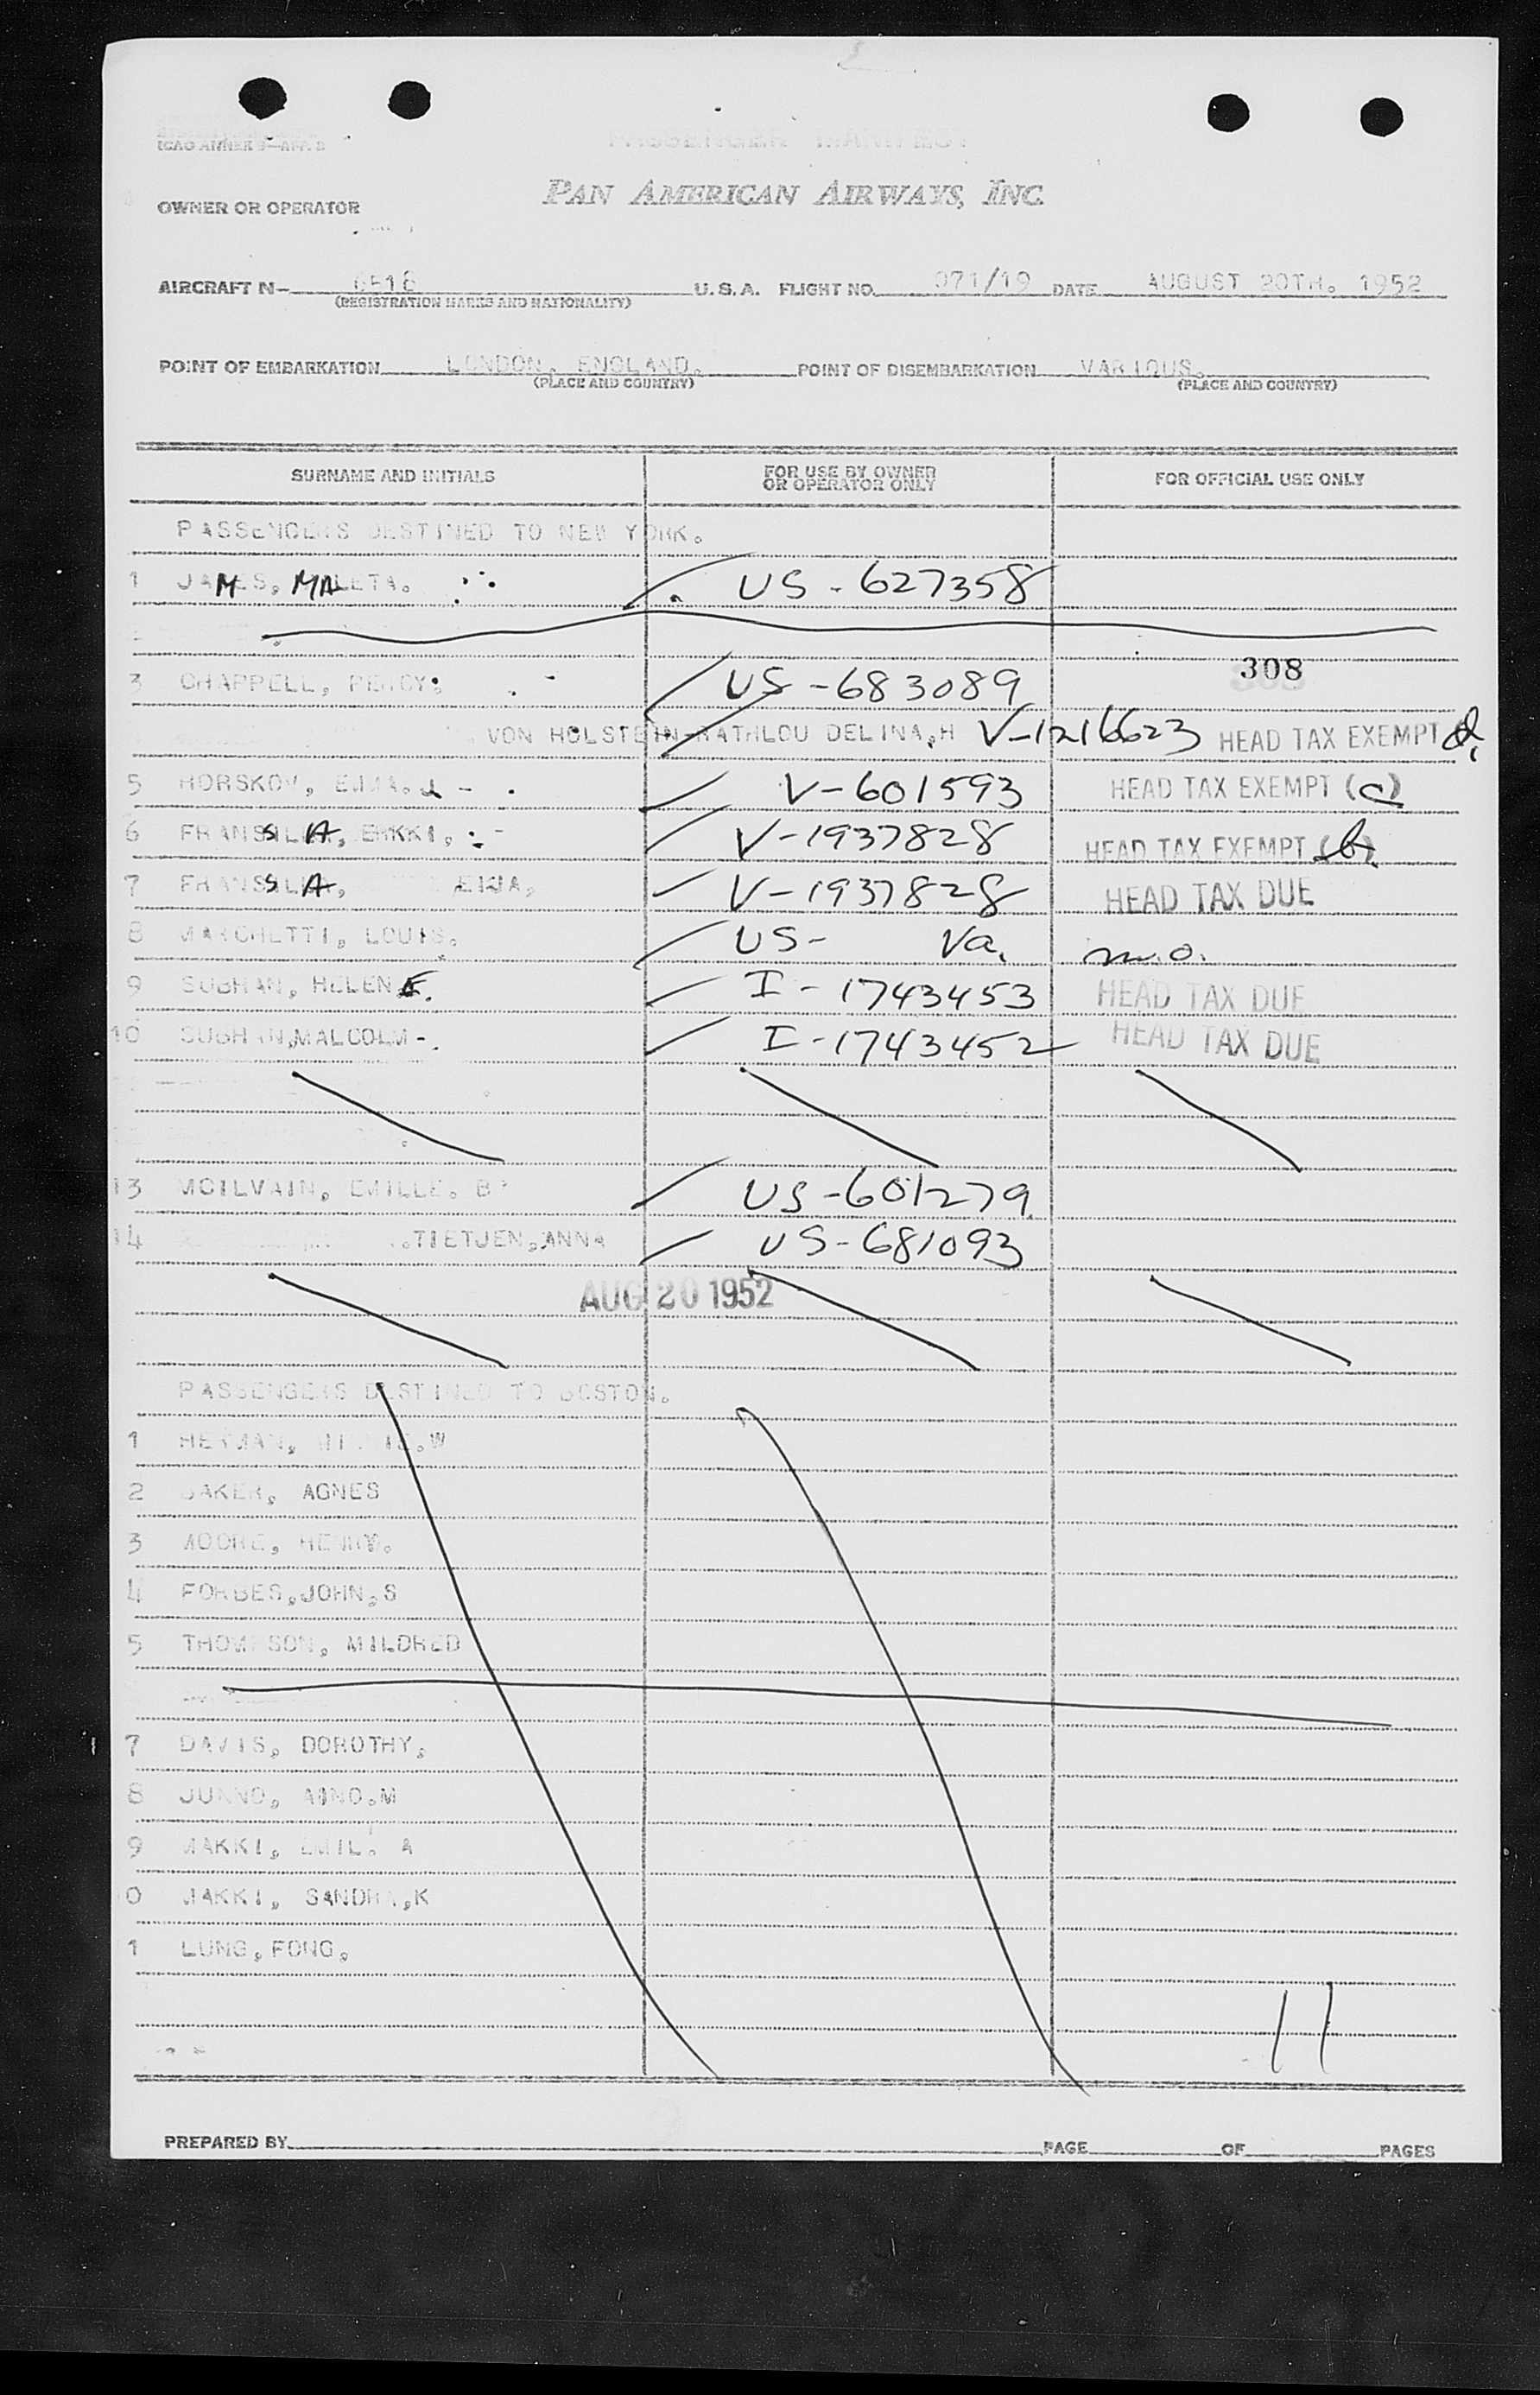 ICAO ANNEX 9—APP. B
PASSENGER MANIFEST
PAN AMERICAN AIRWAYS, INC.
OWNER OR OPERATOR
AIRCRAFT N- 6518 U. S. A. FLIGHT NO. 071/19 DATE AUGUST 20TH. 1952
(REGISTRATION MARKS AND NATIONALITY)
POINT OF EMBARKATION LONDON, ENGLAND. POINT OF DISEMBARKATION VARIOUS.
(PLACE AND COUNTRY) (PLACE AND COUNTRY)
SURNAME AND INITIALS FOR USE BY OWNER OR OPERATOR ONLY FOR OFFICIAL USE ONLY
PASSENGERS DESTINED TO NEW YORK.
1 JAMES, MALETA. US - 627358
308
3 CHAPPELL, PERCY. US - 683089
VON HOLSTEIN-RATHLOU DELINA,H V-1216623 HEAD TAX EXEMPT
5 HORSKOV, V-601593 HEAD TAX EXEMPT (C)
6 FRANSSILA, ERKKI, V-1937828 HEAD TAX EXEMPT (b)
7 FRANSSILA, EIJA, V-1937828 HEAD TAX DUE
8 MARCHETTI, LOUIS. US- Va. m.o.
9 SUBHAN, HELEN F. I - 1743453 HEAD TAX DUE
10 SUBHAN,MALCOLM-. I - 1743452 HEAD TAX DUE
13 MCILVAIN, EMILLE. B US-601279
14 TIETJEN,ANNA US-681093
AUG 20 1952
PASSENGERS DESTINED TO BOSTON.
1 HERMAN, W
2 BAKER, AGNES
3 MOORE, HENRY.
4 FORBES,JOHN,S
5 THOMPSON, MILDRED
7 DAVIS, DOROTHY,
8 JUNNO, AINO.M
9 MAKKI, EMIL. A
0 MAKKI, SANDRA,K
1 LUNG,FONG,
11
PREPARED BY PAGE OF PAGES